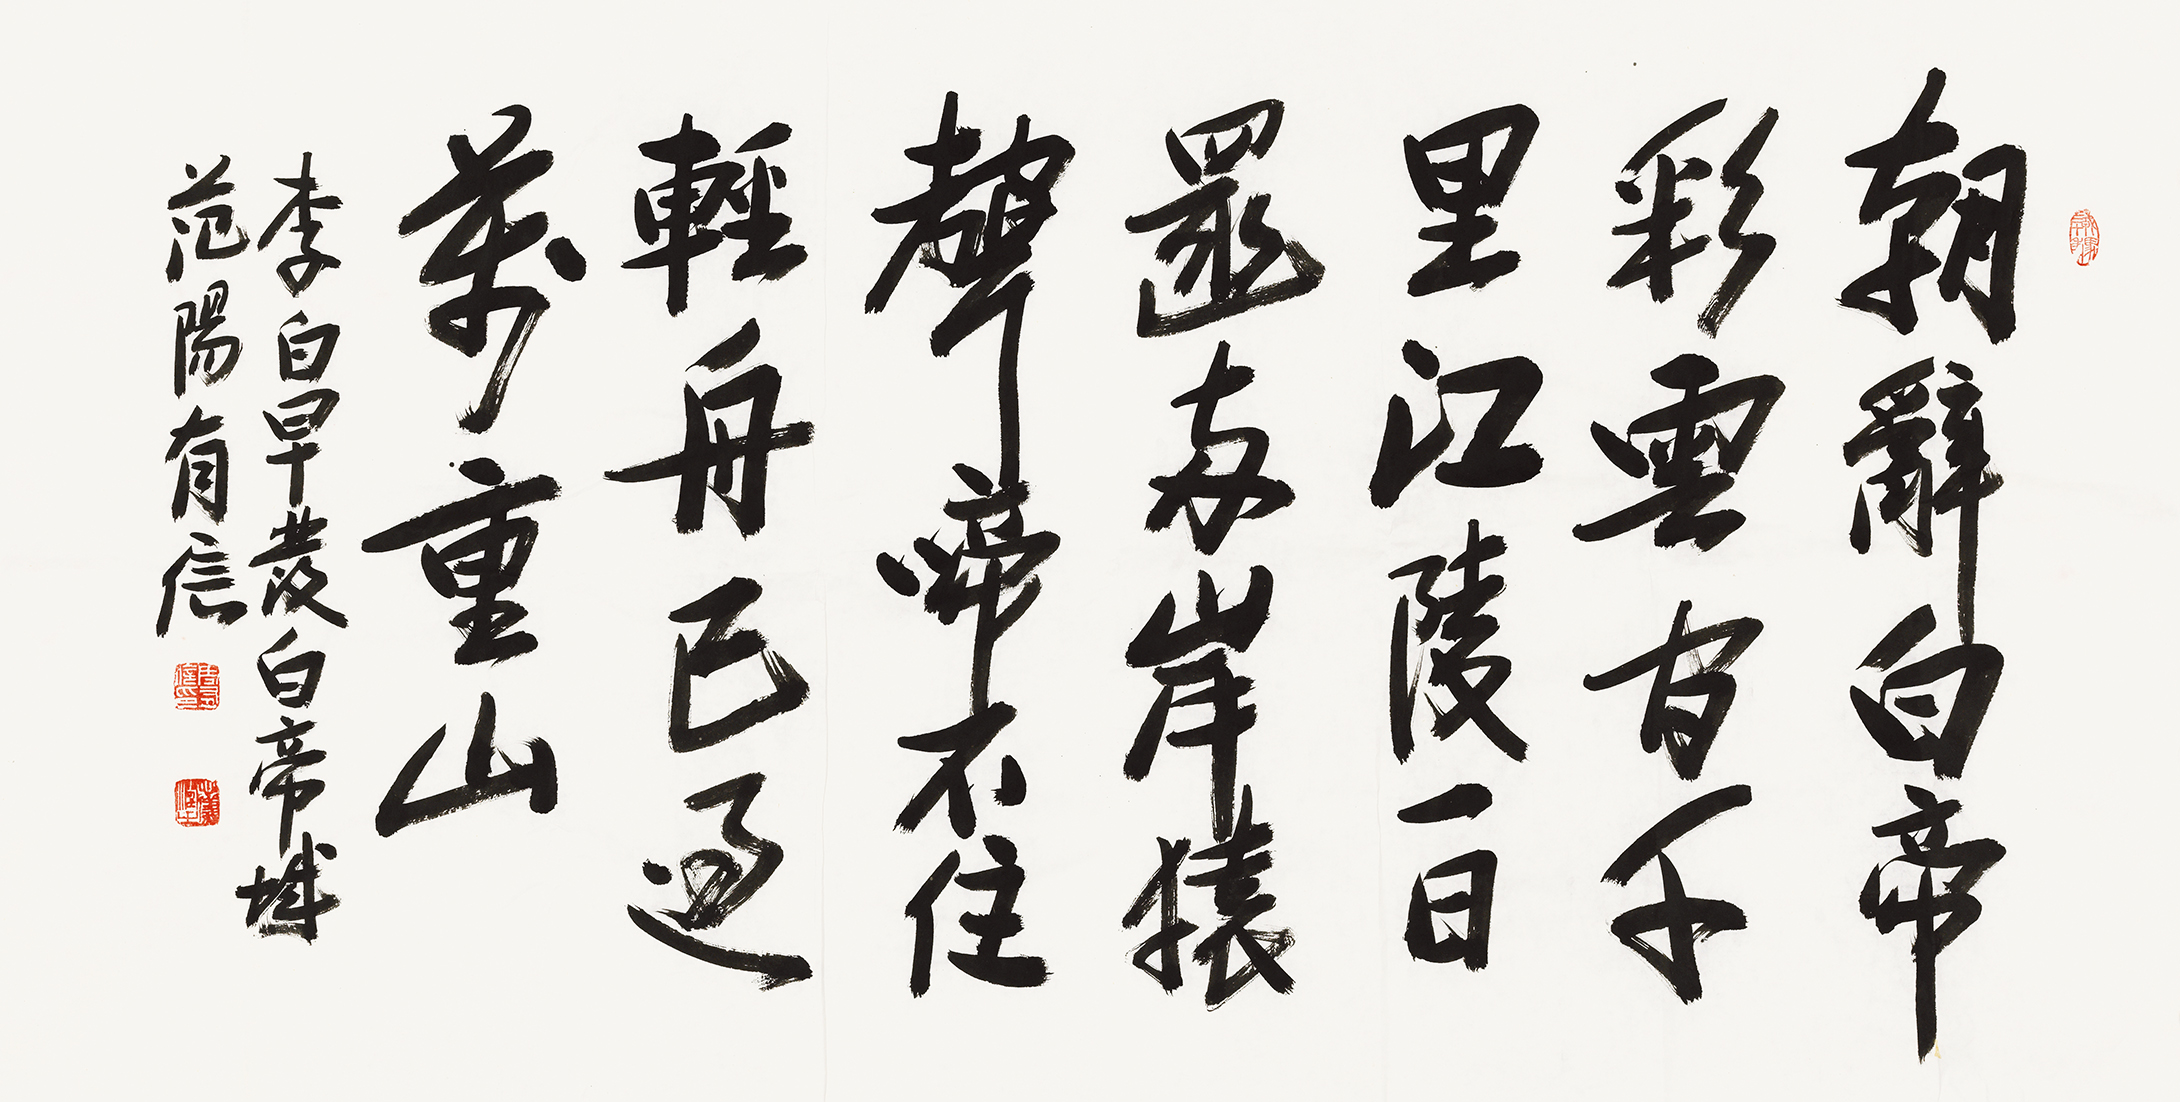 朝辭白帝
彩雲間千
里江陵一日
還兩岸猿
聲啼不住
輕舟已過
萬重山
李白早發白帝城
范陽有信